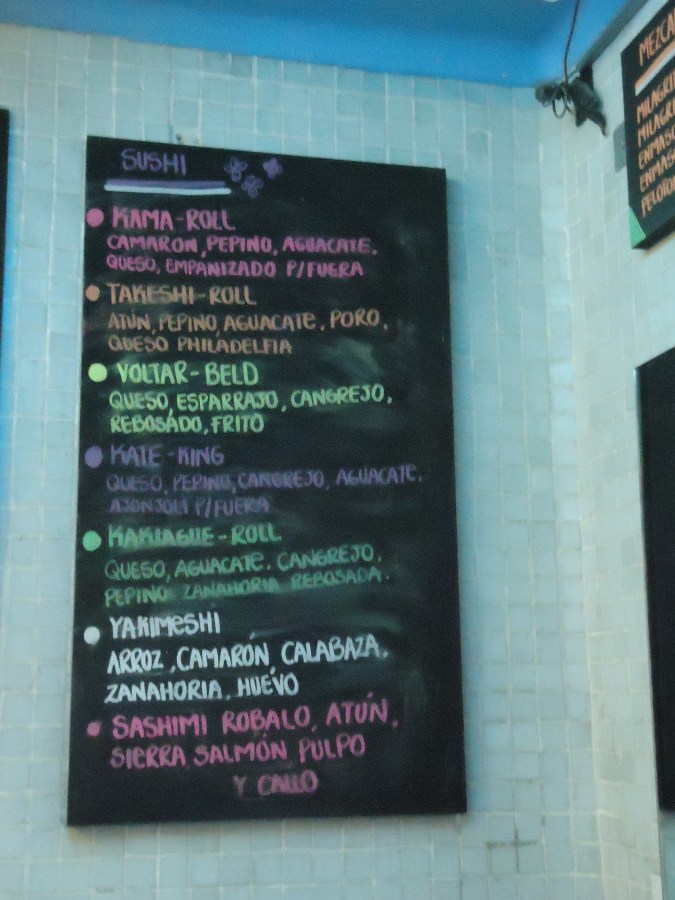 SUSHI
KAMA-ROLL
CAMARON, PEPINO, AGUACATE,
QUESO, EMPANIZADO P/FUERA
TAKESHI-ROLL
ATÚN, PEPINO, AGUACATE, PORO,
QUESO PHILADELFIA
VOLTAR-BELD
QUESO, ESPARRAJO, CANGREJO,
REBOSADO, FRITO
KATE-KING
QUESO, PEPINO, CANGREJO, AGUACATE,
AJONJOLI P/FUERA
KAKIAGUE-ROLL
QUESO, AGUACATE, CANGREJO,
PEPINO ZANAHORIA REBOSADA.
YAKIMESHI
ARROZ, CAMARÓN, CALABAZA,
ZANAHORIA, HUEVO
SASHIMI ROBALO, ATÚN,
SIERRA, SALMÓN PULPO
Y CALLO